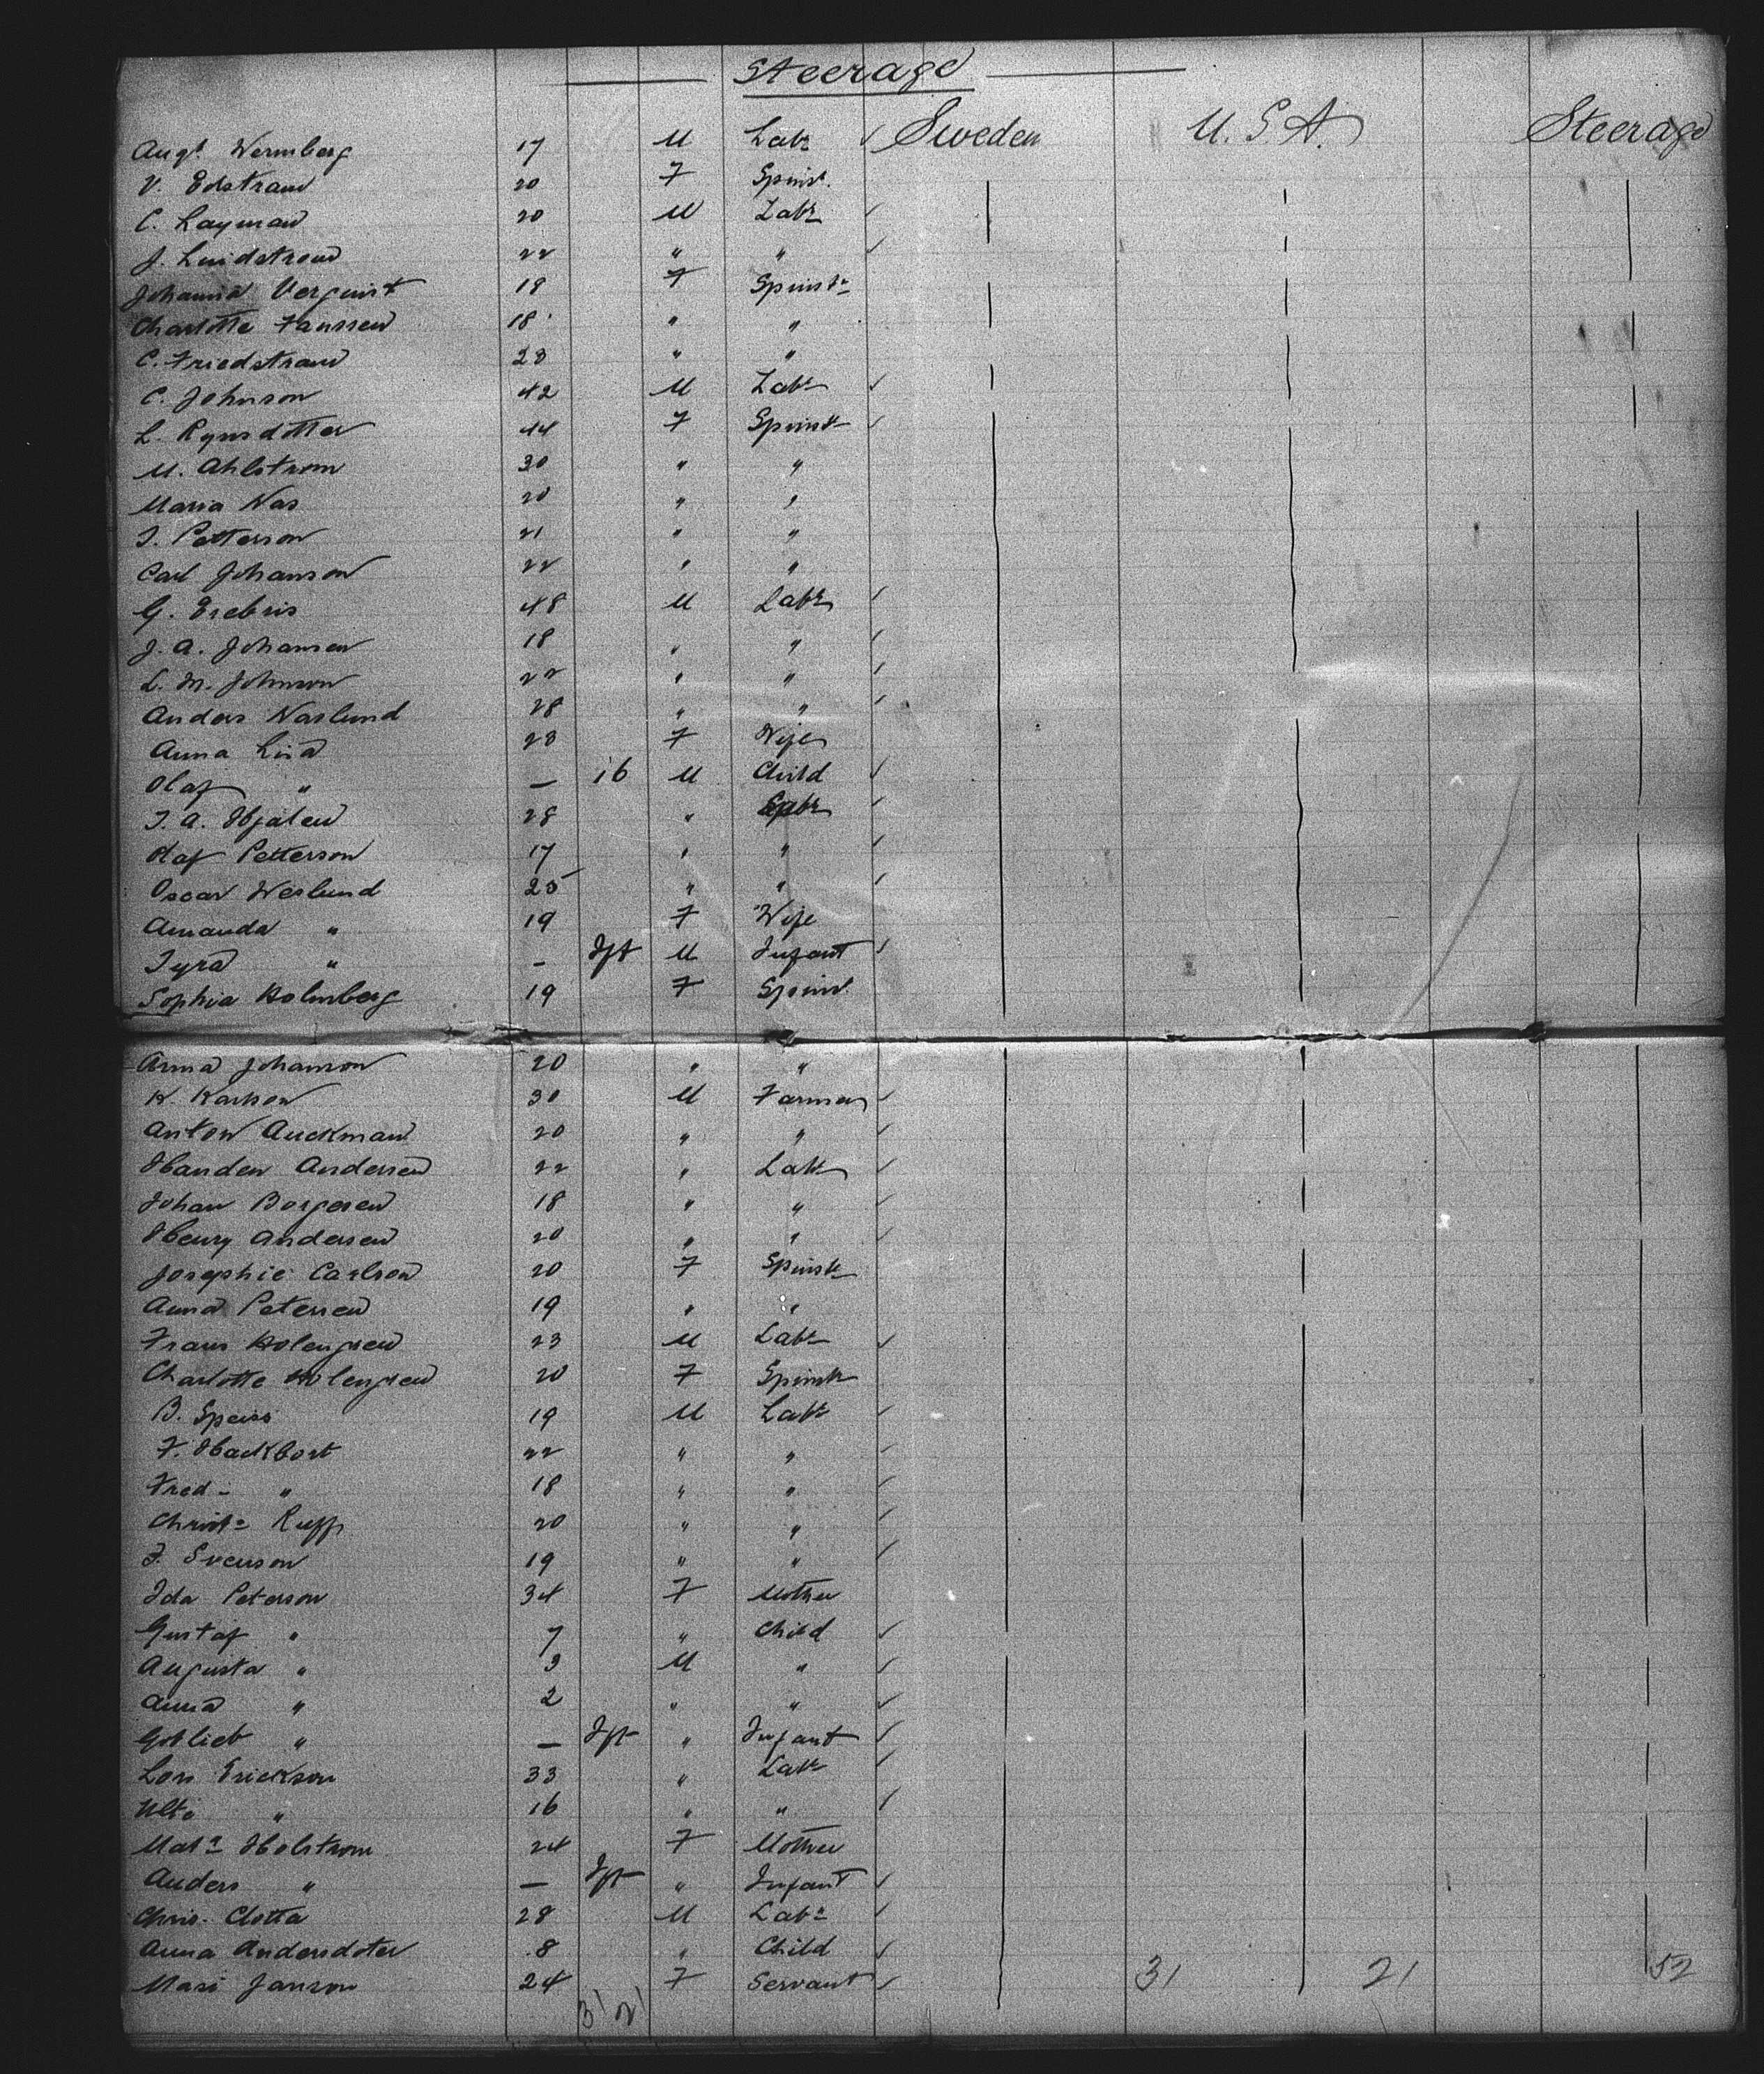 Steerage
Augt. Wermberg 17 M Labr ✓ Sweden U.S.A. Steerage
V. Edstrand 20 F Spinst.
C. Layman 20 M Labr ✓
J. Lindstrom 22 " " ✓
Johanna Verguist 18 F Spinstr
Charlotte Janssen 18 " "
C. Friedstrand 28 " "
C. Johnson 42 M Labr ✓
L. Rynsdotter 44 F Spinstr ✓
M. Ahlstrom 30 " "
Maria Nas 20 " "
J. Petterson 21 " "
Carl Johanson 22 " "
G. Erebris 48 M Labr ✓
J. A. Johansen 18 " " ✓
L. M. Johnson 22 " " ✓
Anders Naslund 28 " " ✓
Anna Lisa 28 F Wife
Olaf " — 16 M Child ✓
J. A. 28 " Labr ✓
Olaf Petterson 17 " " ✓
Oscar Weslund 25 " " ✓
Amanda " 19 F Wife
Tyra " - Ift M Infant ✓
Sophia Holmberg 19 F Spinst.
Anna Johanson 20 " "
K. Karlson 30 M Farmer ✓
Anton Auckman 20 " " ✓
Handen Andersen 22 " Labr ✓
Johan Borgesen 18 " " ✓
Henry Andersen 20 " " ✓
Josephie Carlson 20 F Spinstr
Anna Petersen 19 " "
Frans Holengren 23 M Labr ✓
Charlotte Holengren 20 F Spinstr
B. Speiss 19 M Labr ✓
F. Hackbort 22 " " ✓
Fred - " 18 " " ✓
Christn Rupp 20 " " ✓
J. Svenson 19 " " ✓
Ida Peterson 34 F Mother
Gustaf " 7 " Child ✓
Augusta " 3 M " ✓
Anna " 2 " " ✓
Gotlieb " — Ift " Infant ✓
Lors Erickson 33 " Labr ✓
" 16 " " ✓
Mata Holstrom 24 F Mother
Anders " — Ift " Infant ✓
Chris. Clotta 28 M Labr ✓
Anna Andersdoter 8 " Child ✓
Mari Janson 24 F Servant ✓ 31 21 52
31 21